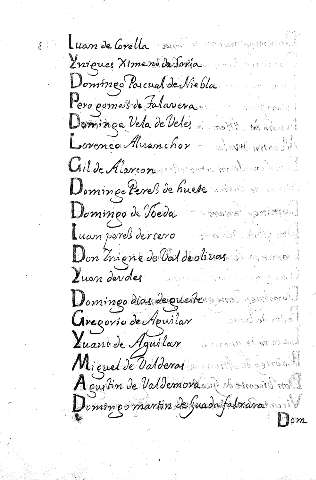 Iuan de Corella
Yñigues Ximeno de Soria
Domingo Pascual de Niebla
Pero gomes de Talavera
Dominga Vela de Veles
Lorenço Aluanchor
Gil de Alarcon
Domingo Peres de huete
Domingo de Vbeda
Iuan peres de rsero
Don Ynigne de Valdeolivas
Yuan de
Domingo dias de
Gregorio de Aguilar
Yuano de Aguilar
Miguel de Valderas
Agustin de Valdemora
Domingo martin de Guadafaxara
Dom